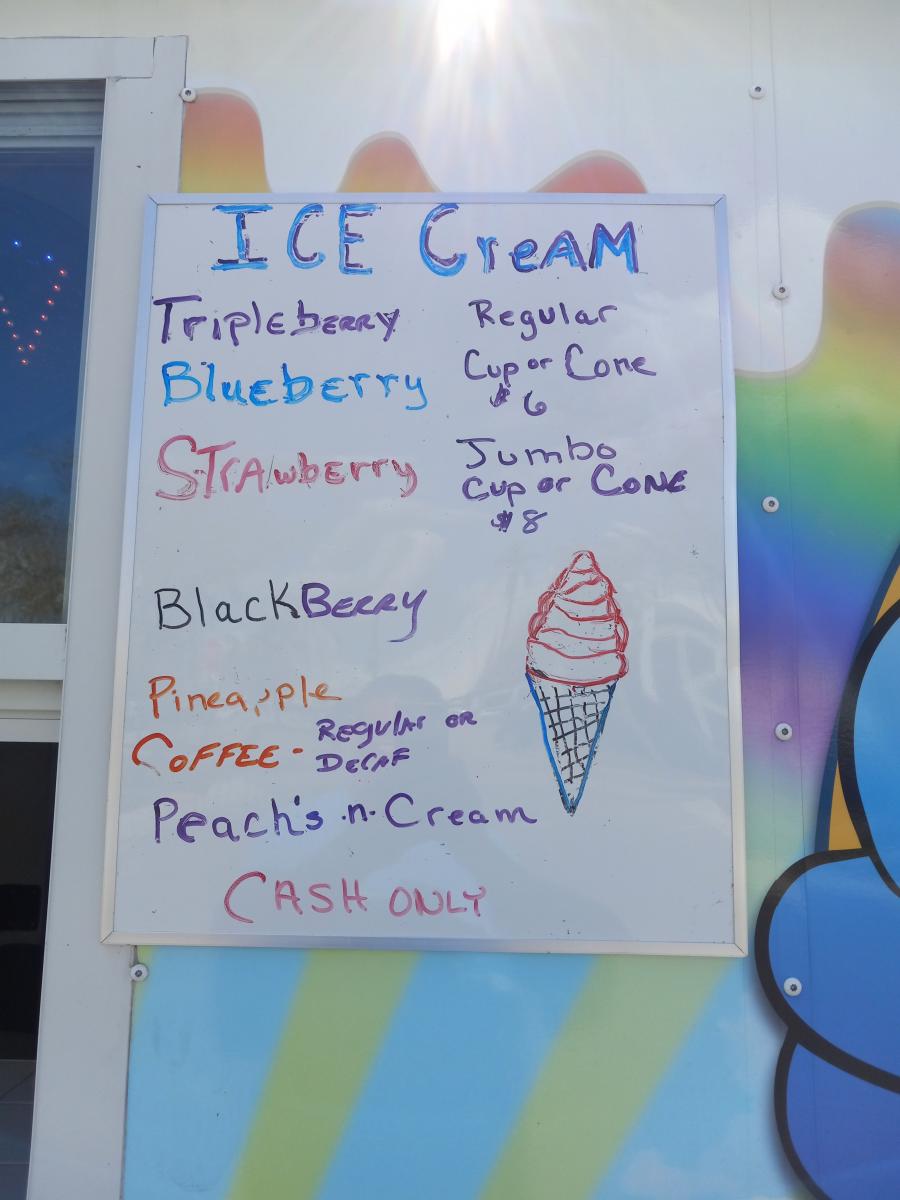 ICE CreAM
TriplebERRY
Blueberry
STrAwberry
Regular
Cup or Cone
$6
Jumbo
Cup or CONE
$8
BlackBERRY
Pineapple
COFFEE - REGULAR OR
DECAF
Peach's -n- Cream
CASH ONLY